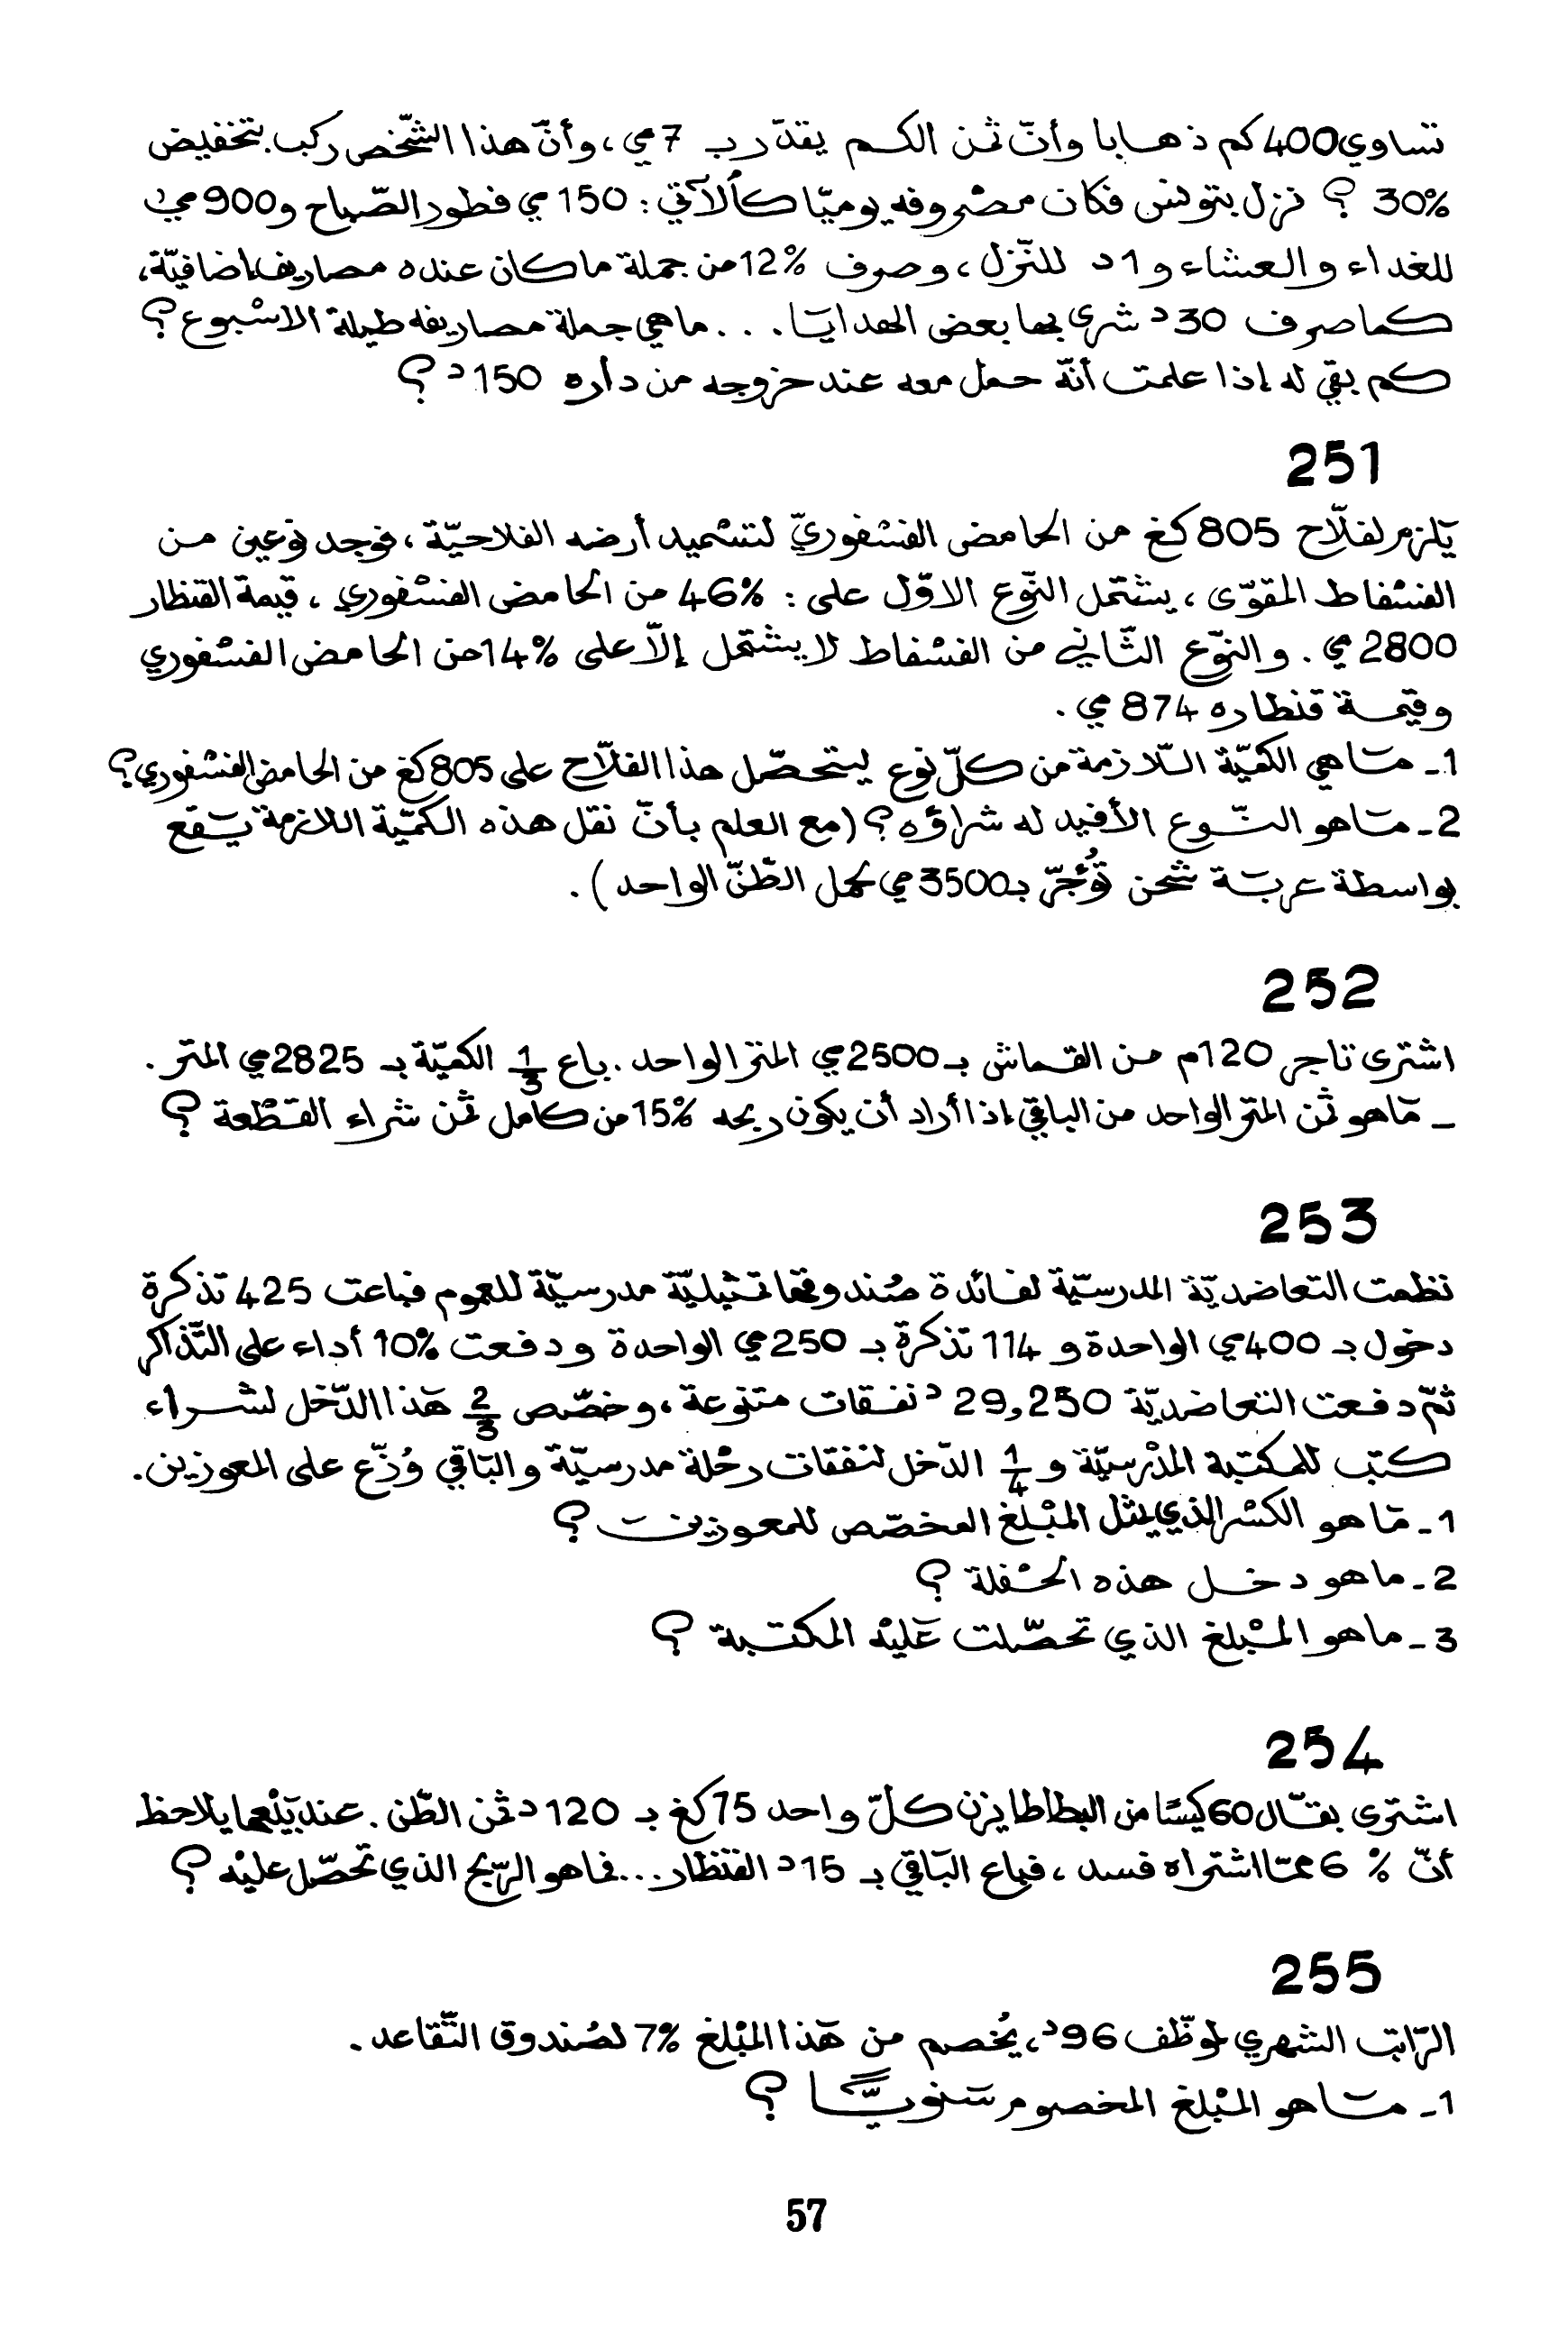 تساوي 400 كم ذهابا وأنّ ثمن الكم يقدّر بـ 7 مي، وأنّ هذا الشّخص ركب بتخفيض
30% ؟ نزل بتونس فكان مصروفه يوميّا كالآتي : 150 مي فطور الصّباح و 900 مي
للغداء والعشاء و 1د للنّزل، وصرف 12% من جملة ما كان عنده مصاريف إضافيّة،
كما صرف 30 د شرى بها بعض الهدايا... ما هي جملة مصاريفه طيلة الاسْبوع ؟
كم بقي له إذا علمت أنّه حمل معه عند خروجه من داره 150 د ؟
251
يَلزم لفلّاح 805 كغ من الحامض الفسْفوريّ لتسْميد أرضه الفلاحيّة، فوجد نوعين من
الفسْفاط المقوّى، يشتمل النّوع الاوّل على : 46% من الحامض الفسْفوري، قيمة القنطار
2800 مي . والنّوع الثّاني من الفسْفاط لا يشتمل إلاّ على 14% من الحامض الفسْفوري
وقيمة قنطاره 874 مي .
1 ـ ما هي الكميّة اللّازمة من كلّ نوع ليتحصّل هذا الفلاّح على 805 كغ من الحامض الفسْفوري ؟
2 ـ ما هو النّوع الأفيد له شراؤه ؟ (مع العلم بأنّ نقل هذه الكميّة اللازمة يقع
بواسطة عربة شحن تُؤجّر بـ 3500 مي لحمل الطّنّ الواحد ) .
252
اشترى تاجر 120م من القماش بـ 2500 مي المتر الواحد . باع 1/3 الكميّة بـ 2825 مي المتر .
ـ مَا هو ثمن المتر الواحد من الباقي إذا أراد أن يكون ربحه 15% من كامل ثمن شراء القطْعة ؟
253
نظمت التعاضديّة المدرسيّة لفائدة صُندوقها تمثيليّة مدرسيّة للعموم فباعت 425 تذكرة
دخول بـ 400 مي الواحدة و 114 تذكرة بـ 250 مي الواحدة ودفعت 10% أداء على التّذاكر
ثمّ دفعت التعاضديّة 29,250 د نفقات متنوعة، وخصّص 2/3 هَذا الدّخل لشراء
كتب للمكتبة المدْرسيّة و 1/4 الدّخل لنفقات رحْلة مدرسيّة والبَاقي وُزّع على المعوزين .
1 ـ مَا هو الكسْر الذي يمثل المبْلغ المخصّص للمعوزين ؟
2 ـ ما هو دخل هذه الحفْلة ؟
3 ـ ما هو المبْلغ الذي تحصّلت عَليْه المكتبة ؟
254
اشترى بقّال 60 كيسًا من البطاطا يزن كلّ واحد 75 كغ بـ 120 د ثمن الطّن . عند بَيْعها يلاحظ
أنّ % 6 ممّا اشتراه فسد، فباع البَاقي بـ 15 د القنْطار... فما هو الرّبح الذي تحصّل عليْه ؟
255
الرّاتب الشهري لموظّف 96 د، يُخصم من هَذا المبْلغ 7% لصُندوق التّقاعد .
1 ـ ما هو المبْلغ المخصوم سَنويًّا ؟
57